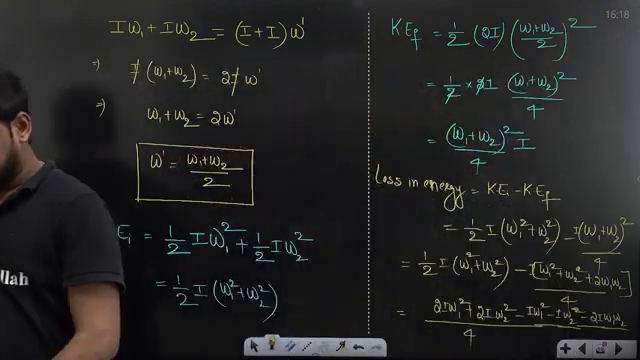 16:18
Iω₁ + Iω₂ = (I+I)ω'
⇒ I(ω₁+ω₂) = 2Iω'
⇒ ω₁+ω₂ = 2ω'
ω' = (ω₁+ω₂)/2
Eᵢ = 1/2 Iω₁² + 1/2 Iω₂²
= 1/2 I(ω₁²+ω₂²)
K.E_f = 1/2 (2I) ((ω₁+ω₂)/2)²
= 1/2 × 2I (ω₁+ω₂)²/4
= (ω₁+ω₂)²/4 I
Loss in energy = KEᵢ - KE_f
= 1/2 I(ω₁²+ω₂²) - I(ω₁+ω₂)²/4
= 1/2 I(ω₁²+ω₂²) - I[ω₁²+ω₂²+2ω₁ω₂]/4
= (2Iω₁²+2Iω₂² - Iω₁² - Iω₂² - 2Iω₁ω₂)/4
llah